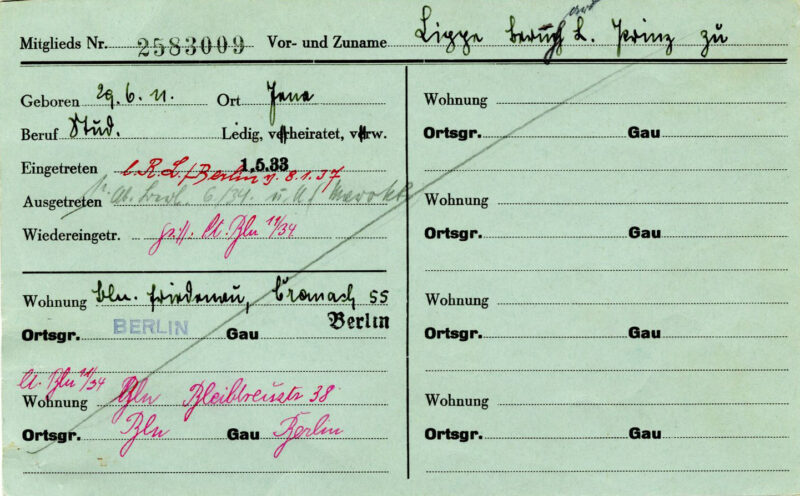 Mitglieds Nr. 2583009 Vor- und Zuname Lippe Prinz zu
Geboren 29.6.11. Ort Jena
Beruf Stud. Ledig, verheiratet, verw.
Eingetreten 1.5.33
b.R.L./Berlin v. 8.1.37
Ausgetreten 6/34. u.
Wiedereingetr. Lt. Bln 11/34
Wohnung Bln. Friedenau, Cranach 55
Ortsgr. BERLIN Gau Berlin
Lt. Bln 11/34
Wohnung Bln Bleibtreustr 38
Ortsgr. Bln Gau Berlin
Wohnung
Ortsgr. Gau
Wohnung
Ortsgr. Gau
Wohnung
Ortsgr. Gau
Wohnung
Ortsgr. Gau